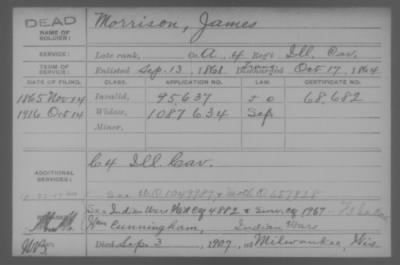 DEAD
NAME OF SOLDIER:
Morrison, James
SERVICE:
Late rank, Co. A, 4 Reg't Ill. Cav.
TERM OF SERVICE:
Enlisted Sep. 13, 1861 Discharged Oct 17, 1864
DATE OF FILING. CLASS. APPLICATION NO. LAW. CERTIFICATE NO.
1865 Nov 14 Invalid, 95,637 68,682
1916 Oct 14 Widow, 1087634 Sep
Minor,
C 4 Ill. Cav.
ADDITIONAL SERVICES:
See W.O. 1049787 & Moth O. 657828
See Indian Wars 4882 & Surv. 1967
Wm Cunningham, Indian Wars
Died Sep. 3, 1907, at Milwaukee, Wis